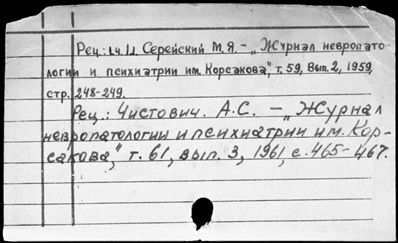 Рец.: Серейский М.Я. – „Журнал невропато-
логии и психиатрии им. Корсакова", т. 59, вып. 2, 1959,
стр. 248-249.
Рец.: Чистович. А.С. – „Журнал
невропатологии и психиатрии им. Кор-
сакова", т. 61, вып. 3, 1961, с. 465-467.